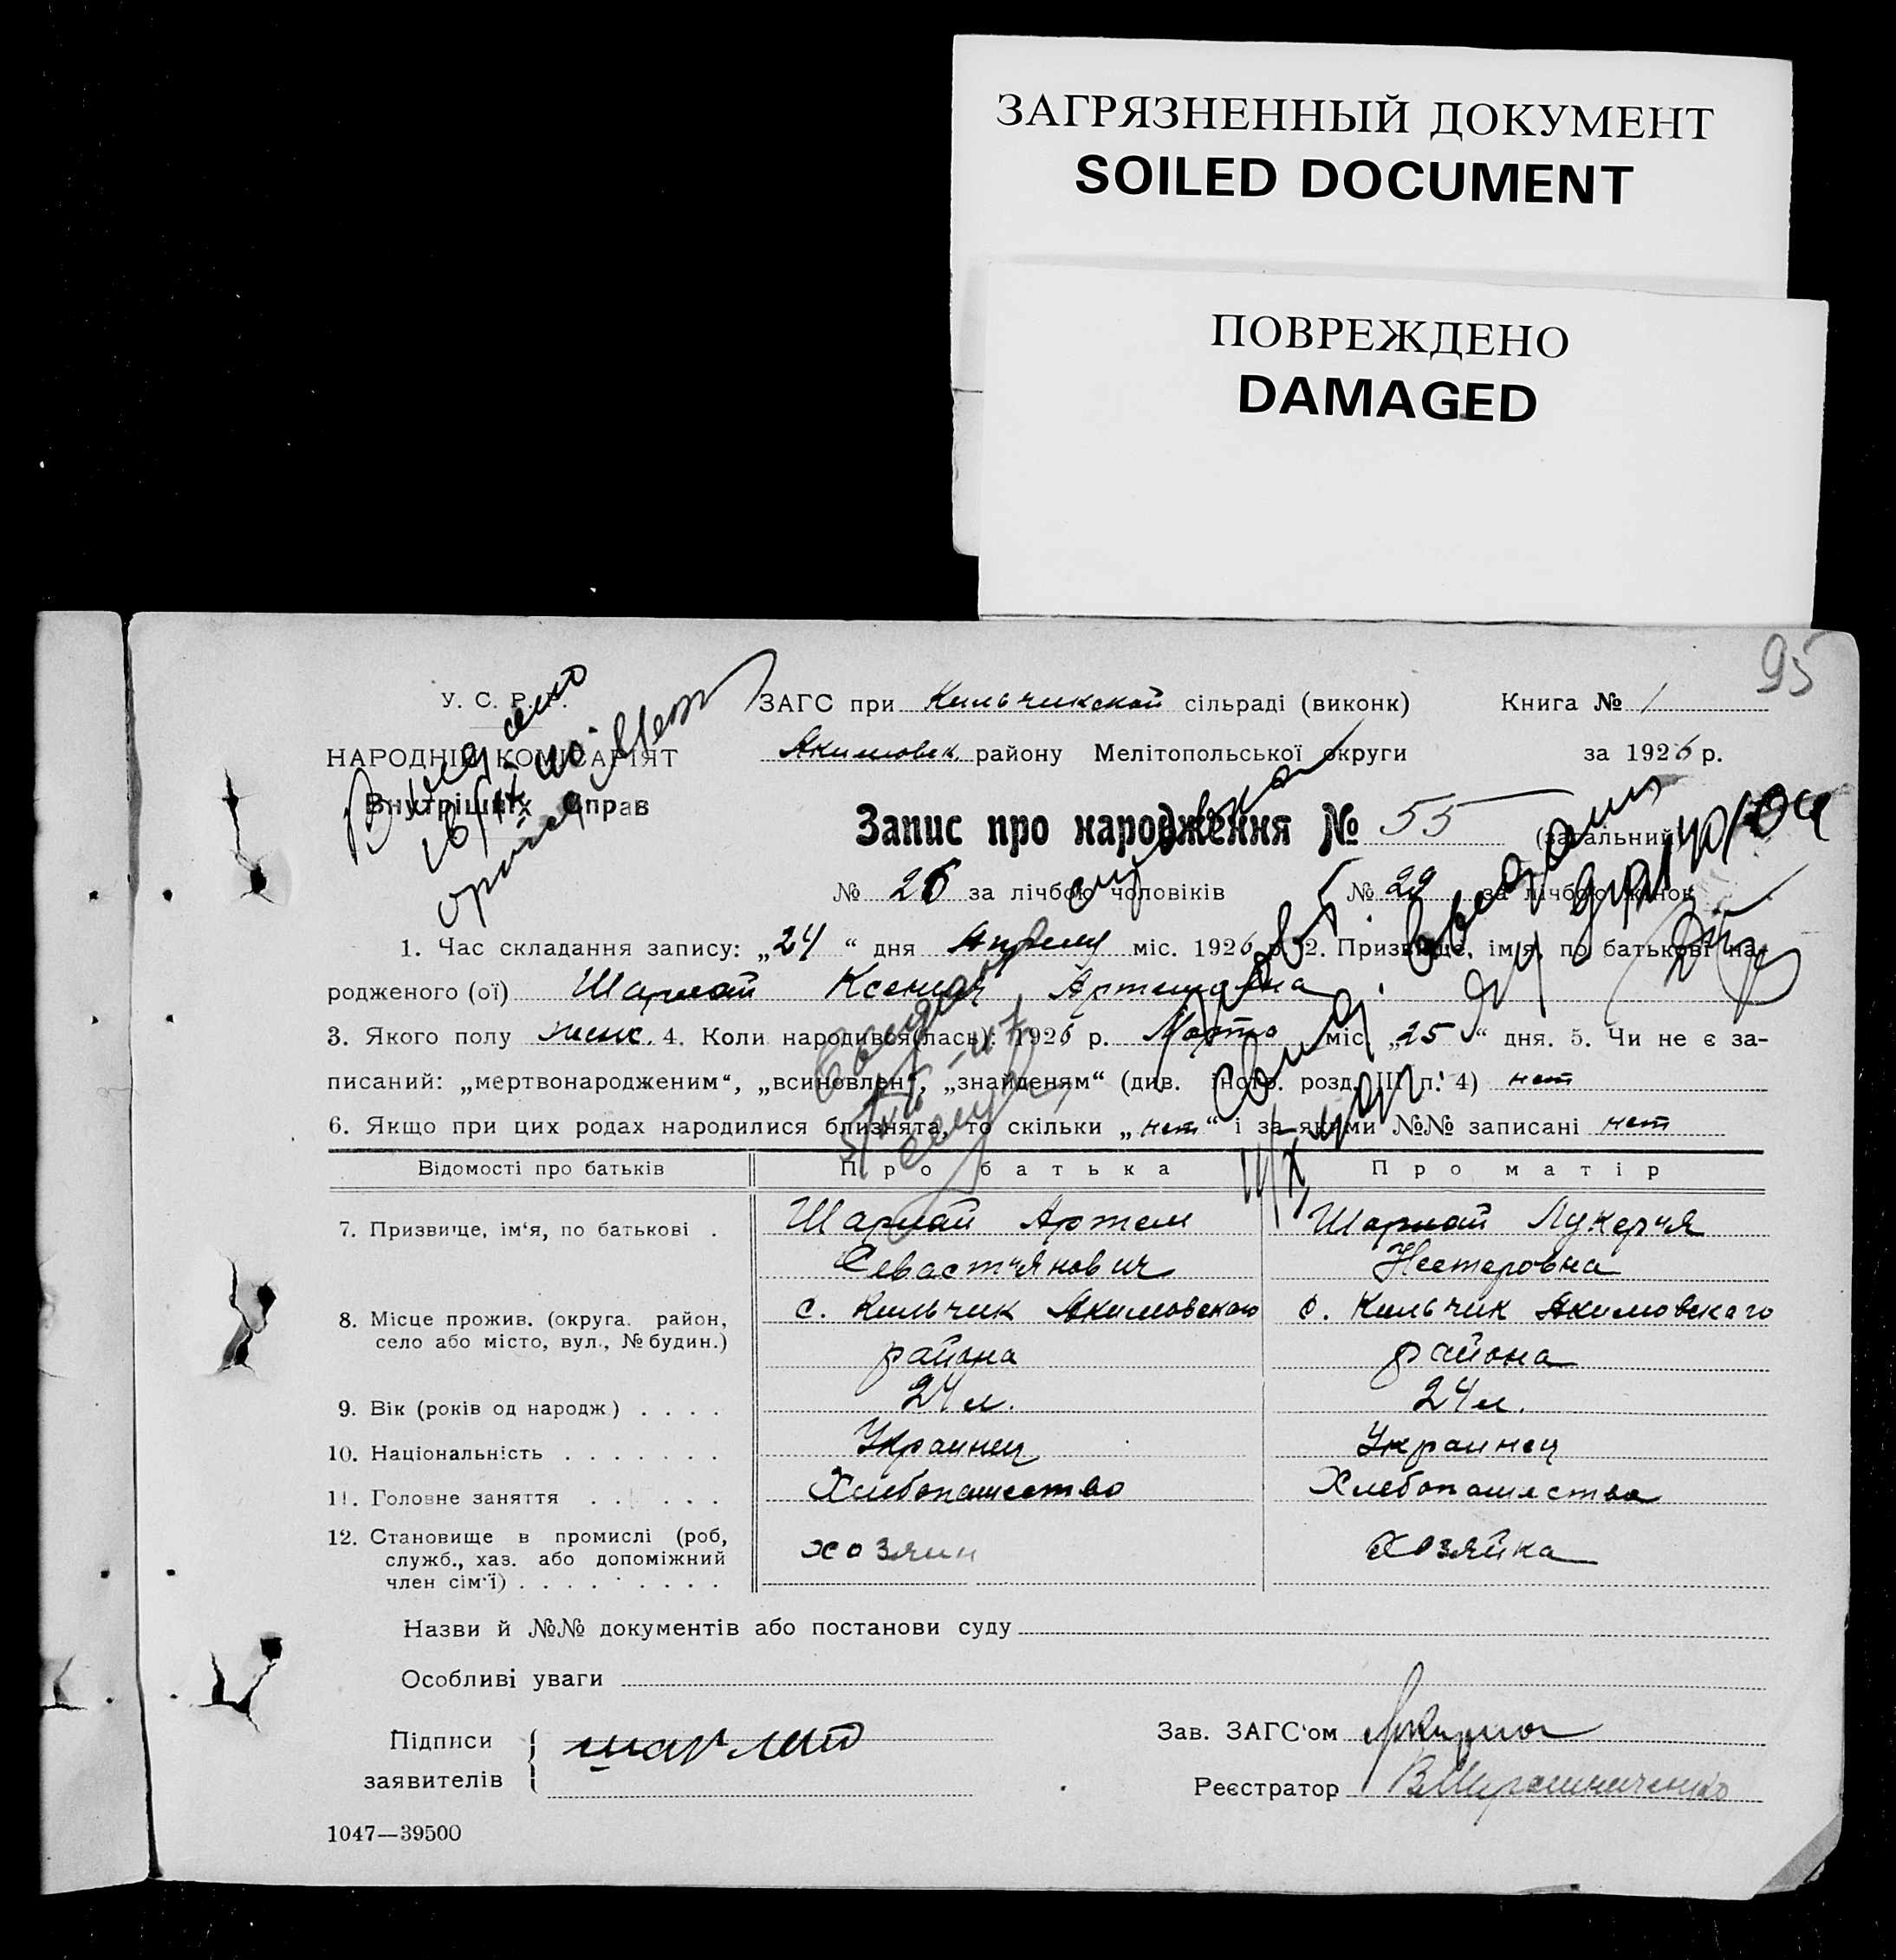 ЗАГРЯЗНЕННЫЙ ДОКУМЕНТ
SOILED DOCUMENT
ПОВРЕЖДЕНО
DAMAGED
95
У. С. Р. Р.
ЗАГС при Кильчикской сільраді (виконк) Книга № 1
НАРОДНІЙ КОМІСАРІЯТ
Акимовск. району Мелітопольської округи за 1926 р.
Внутрішніх Справ
Запис про народження № 55 (загальний)
№ 26 за лічбою чоловіків № 29 за лічбою жінок
1. Час складання запису: „24“ дня Апреля міс. 1926 р. 2. Призвище, імя, по батькові на-
родженого (ої) Шарлай Ксения Артемовна
3. Якого полу женс. 4. Коли народився(лась): 1926 р. Марта міс. „25“ дня. 5. Чи не є за-
писаний: „мертвонародженим“, „всиновлен“, „знайденям“ (див. розд. III п. 4) нет
6. Якщо при цих родах народилися близнята, то скільки „нет“ і за якими №№ записані нет
Відомості про батьків Про батька Про матір
7. Призвище, ім'я, по батькові . Шарлай Артем Шарлай Лукерия
Севастиянович Нестеровна
8. Місце прожив. (округа. район, с. Кильчик Акимовского с. Кильчик Акимовскаго
село або місто, вул., № будин.) района района
9. Вік (років од народж) . . . . 24 л. 24 л.
10. Національність . . . . . . . Украинец Украинец
11. Головне заняття . . . . . . Хлебопашество Хлебопашества
12. Становище в промислі (роб, хозяин хозяйка
служб., хаз. або допоміжний
член сім'ї) . . . . . . . . .
Назви й №№ документів або постанови суду
Особливі уваги
Підписи шарлай Зав. ЗАГС'ом
заявителів Реєстратор
1047—39500